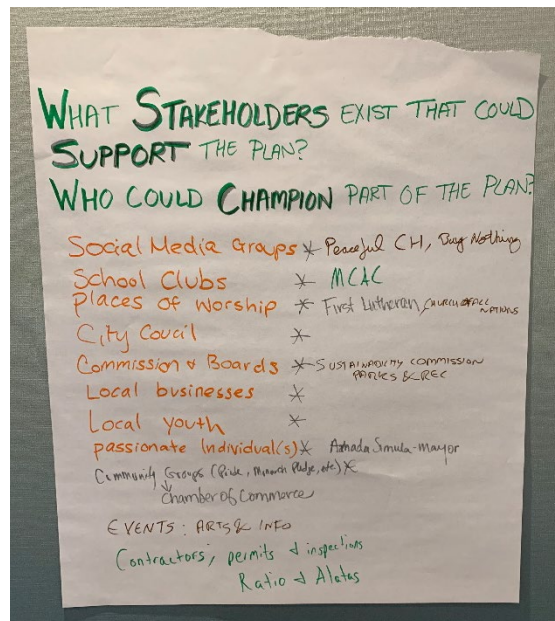 WHAT STAKEHOLDERS EXIST THAT COULD
SUPPORT THE PLAN?
WHO COULD CHAMPION PART OF THE PLAN?
Social Media Groups * Peaceful CH, Buy Nothing
School Clubs * MCAC
Places of Worship * First Lutheran, CHURCH OF ALL NATIONS
City Coucil *
Commission & Boards * SUSTAINABILITY COMMISSION
PARKS & REC
Local businesses *
Local youth *
passionate Individual(s) * Simula-Mayor
Community Groups (Pride, Monarch Pledge, etc.) *
↓
Chamber of Commerce
EVENTS: ARTS & INFO
Contractors, permits & inspections
Ratio &